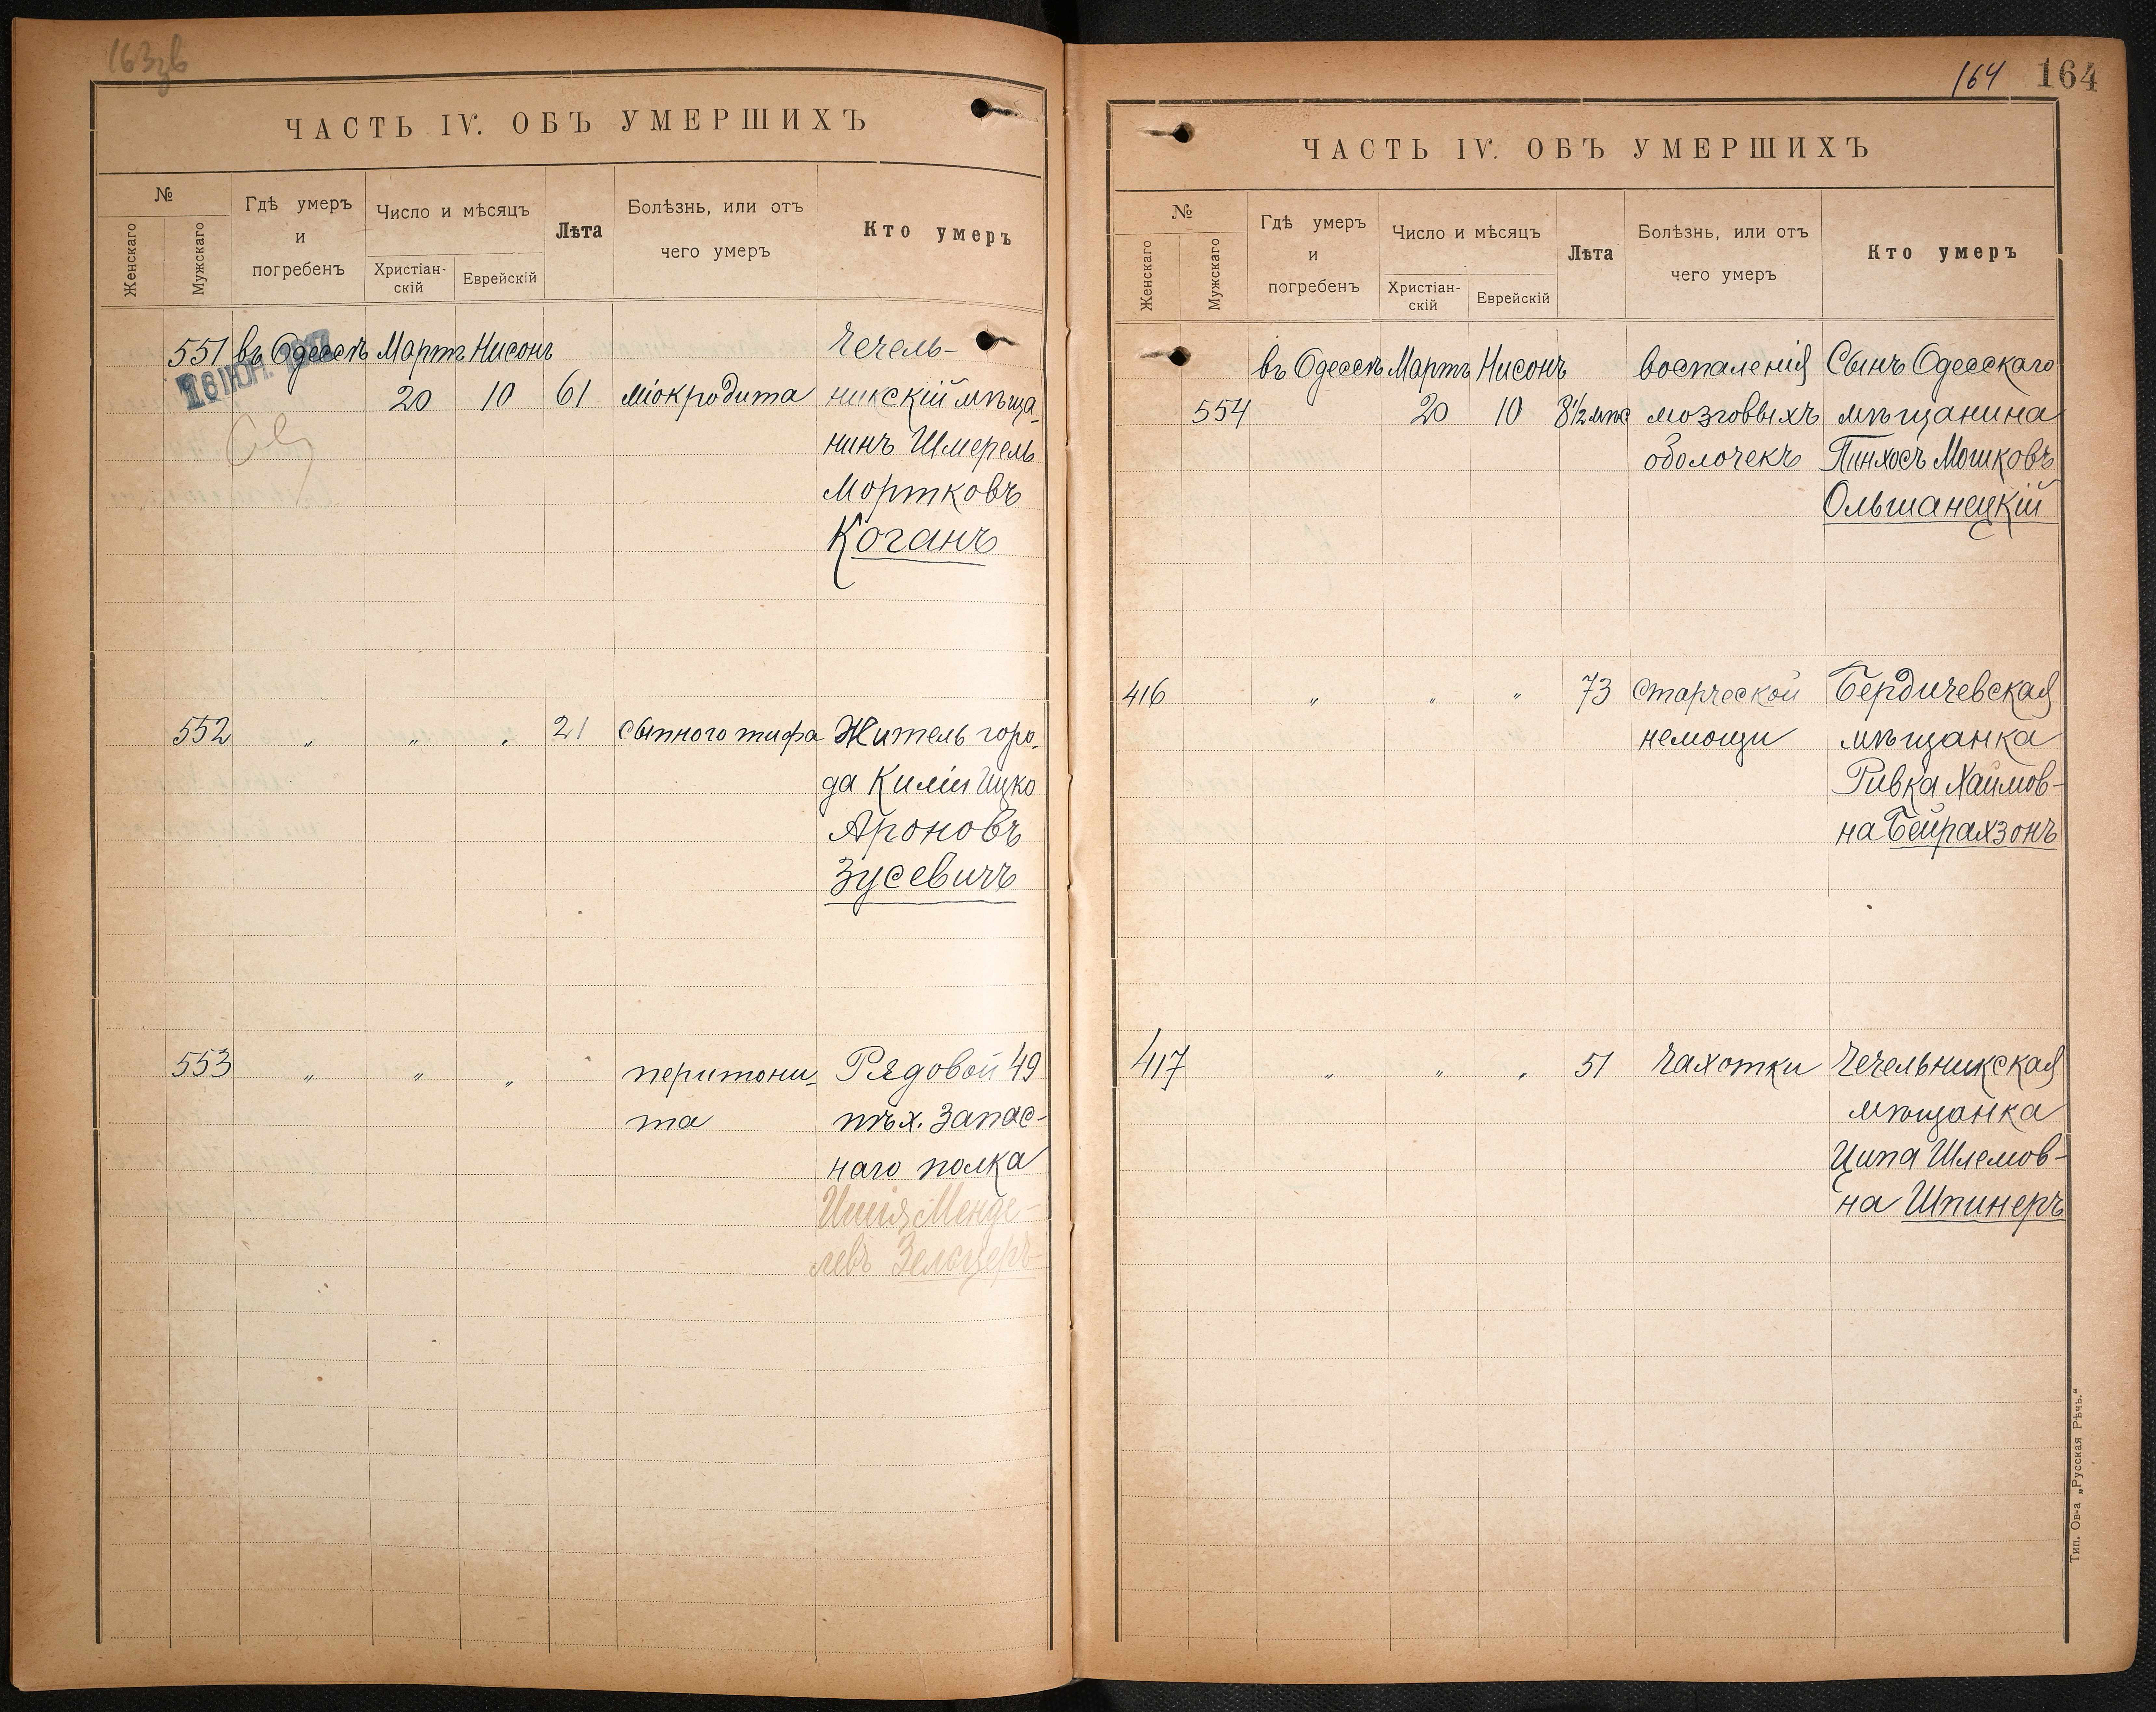 163зв
ЧАСТЬ IV. ОБЪ УМЕРШИХЪ
№
Женскаго
Мужскаго
Гдѣ умеръ
и
погребенъ
Число и мѣсяцъ
Христіан-
скій
Еврейскій
Лѣта
Болѣзнь, или отъ
чего умеръ
Кто умеръ
551 въ Одессѣ Мартъ Нисонъ Чечель-
20 10 61 міокродита никскій мѣща-
нинъ Шмерель
Мортковъ
Коганъ
552 " " " 21 сыпного тифа Житель горо-
да Киліи Ицко
Ароновъ
Зусевичъ
553 " " " перитони- Рядовой 49
та пѣх. Запас-
наго полка
Менде-
левъ Зельцеръ
164 164
ЧАСТЬ IV. ОБЪ УМЕРШИХЪ
№
Женскаго
Мужскаго
Гдѣ умеръ
и
погребенъ
Число и мѣсяцъ
Христіан-
скій
Еврейскій
Лѣта
Болѣзнь, или отъ
чего умеръ
Кто умеръ
въ Одессѣ Мартъ Нисонъ воспаленія Сынъ Одесскаго
554 20 10 8½ мѣс мозговыхъ мѣщанина
оболочекъ Пинхосъ Мошковъ
Ольшанецкій
416 " " " 73 старческой Бердичевская
немощи мѣщанка
Ривка Хаимов-
на Бейрахзонъ
417 " " " 51 чахотки Чечельникская
мѣщанка
Ципа Шлемов-
на Шпинеръ
Тип. Ов-а „Русская Рѣчь."